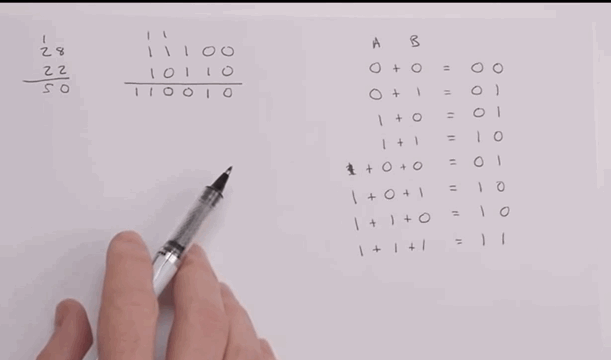 1
28
22
50
1 1
11100
10110
110010
A B
0 + 0 = 0 0
0 + 1 = 0 1
1 + 0 = 0 1
1 + 1 = 1 0
1 + 0 + 0 = 0 1
1 + 0 + 1 = 1 0
1 + 1 + 0 = 1 0
1 + 1 + 1 = 1 1